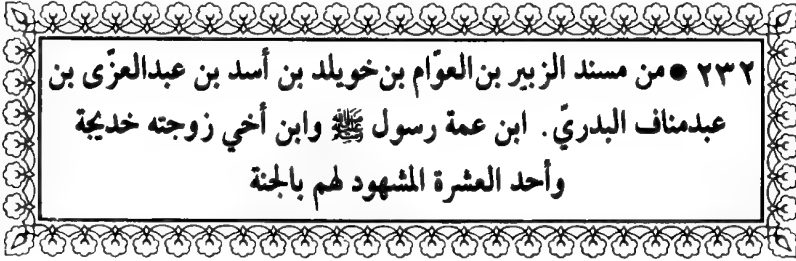 ٢٣٢ ● من مسند الزبير بن العوّام بن خويلد بن أسد بن عبدالعزّى بن
عبدمناف البدريّ. ابن عمة رسول ﷺ وابن أخي زوجته خديجة
وأحد العشرة المشهود لهم بالجنة